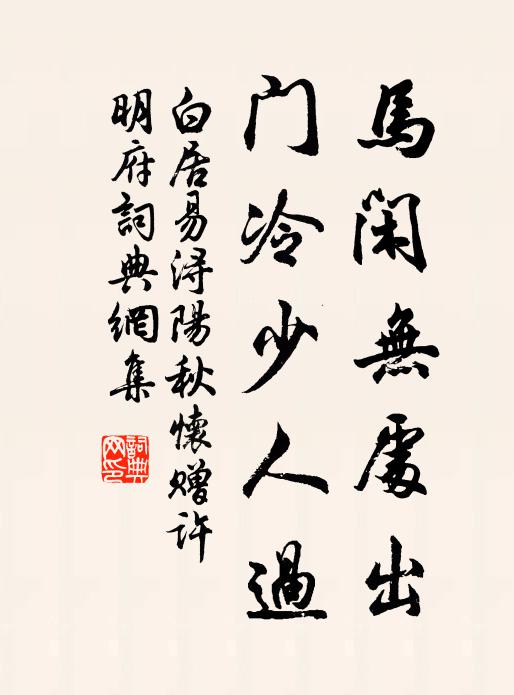 馬閑無處出
门冷少人過
白居易潯陽秋懷贈许
明府詞典網集
詞典网印